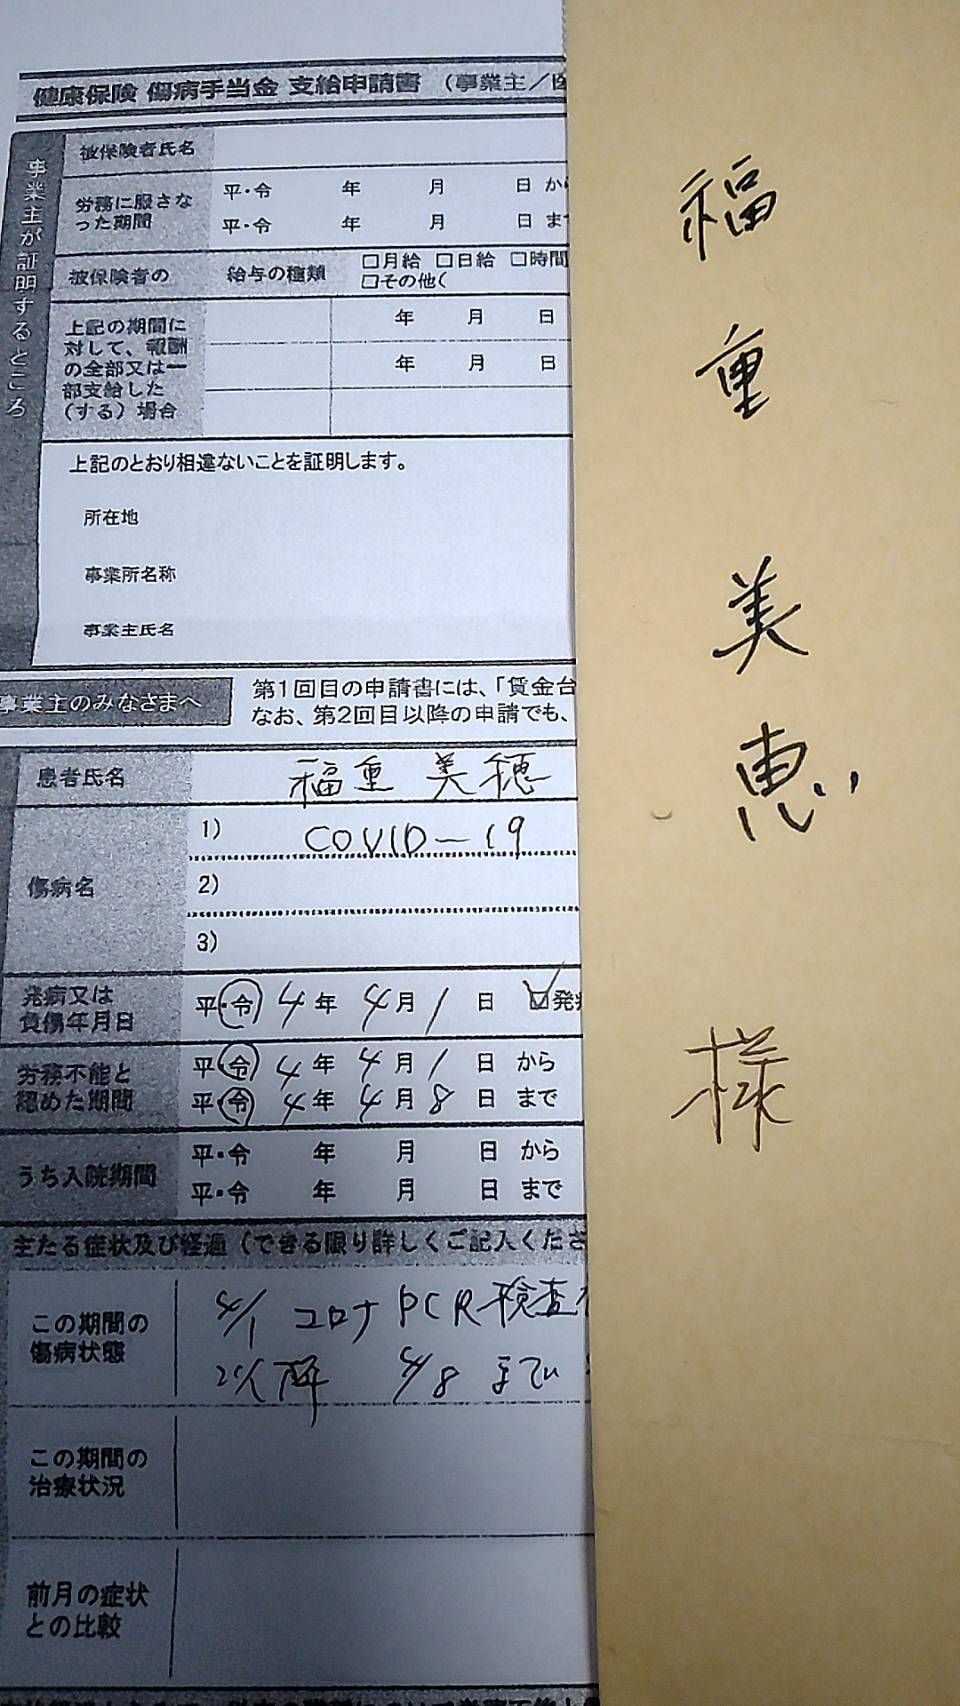 健康保険 傷病手当金 支給申請書 (事業主/医
事業主が証明するところ
被保険者氏名
労務に服さなかった期間
平・令 年 月 日 から
平・令 年 月 日 まで
被保険者の 給与の種類 □月給 □日給 □時間
□その他(
上記の期間に
対して、報酬
の全部又は一
部支給した
(する)場合
年 月 日
年 月 日
上記のとおり相違ないことを証明します。
所在地
事業所名称
事業主氏名
事業主のみなさまへ
第1回目の申請書には、「賃金台
なお、第2回目以降の申請でも、
患者氏名 福重 美穂
傷病名
1) COVID-19
2)
3)
発病又は
負傷年月日
平・令 4年 4月 1日 ☑発病
労務不能と
認めた期間
平・令 4年 4月 1日 から
平・令 4年 4月 8日 まで
うち入院期間
平・令 年 月 日 から
平・令 年 月 日 まで
主たる症状及び経過(できる限り詳しくご記入くださ
この期間の
傷病状態
4/1 コロナPCR検査
以降 4/8 まで
この期間の
治療状況
前月の症状
との比較
福重美恵様